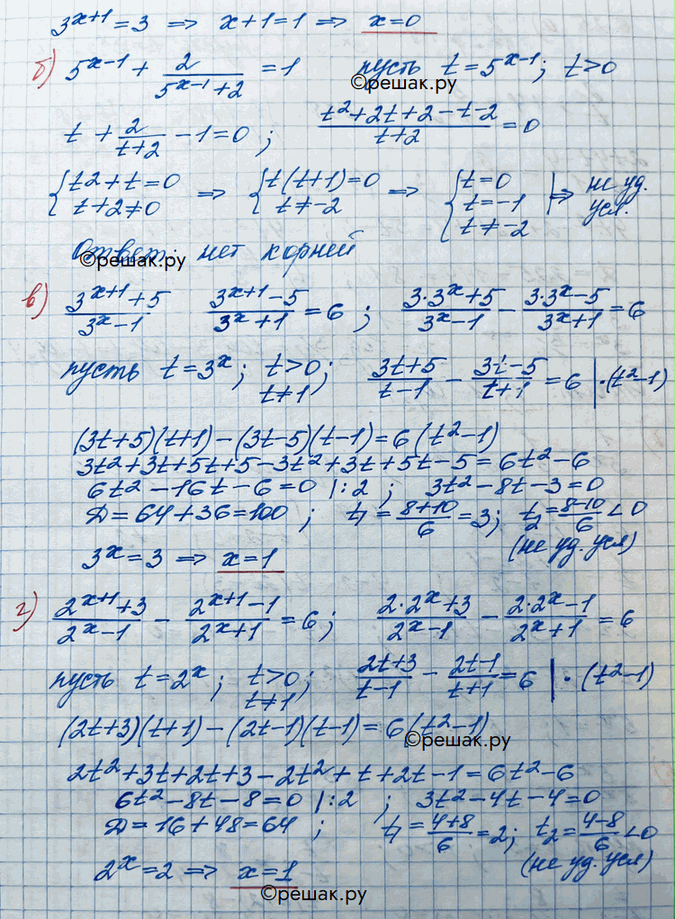 3^{x+1} = 3 => x+1 = 1 => x = 0
б) 5^{x-1} + 2/(5^{x-1}+2) = 1 пусть t = 5^{x-1}; t > 0
©решак.ру
t + 2/(t+2) - 1 = 0; (t²+2t+2-t-2)/(t+2) = 0
{t2 + t = 0; t+2 ≠ 0 => {t(t+1) = 0; t ≠ -2 => {t = 0; t = -1; t ≠ -2 | => не уд. усл.
Ответ: нет корней
©решак.ру
в) (3^{x+1}+5)/(3^x-1) (3^{x+1}-5)/(3^x+1) = 6; (3·3^x+5)/(3^x-1) - (3·3^x-5)/(3^x+1) = 6
пусть t = 3^x; t > 0; t ≠ 1; (3t+5)/(t-1) - (3t-5)/(t+1) = 6 | ·(t²-1)
(3t+5)(t+1) - (3t-5)(t-1) = 6(t²-1)
3t² + 3t + 5t + 5 - 3t² + 3t + 5t - 5 = 6t² - 6
6t² - 16t - 6 = 0 |:2; 3t² - 8t - 3 = 0
D = 64 + 36 = 100; t₁ = (8+10)/6 = 3; t₂ = (8-10)/6 < 0
3^x = 3 => x = 1 (не уд. усл)
г) (2^{x+1}+3)/(2^x-1) - (2^{x+1}-1)/(2^x+1) = 6; (2·2^x+3)/(2^x-1) - (2·2^x-1)/(2^x+1) = 6
пусть t = 2^x; t > 0; t ≠ 1; (2t+3)/(t-1) - (2t-1)/(t+1) = 6 | · (t²-1)
(2t+3)(t+1) - (2t-1)(t-1) = 6(t²-1)
©решак.ру
2t² + 3t + 2t + 3 - 2t² + t + 2t - 1 = 6t² - 6
6t² - 8t - 8 = 0 |:2; 3t² - 4t - 4 = 0
D = 16 + 48 = 64; t₁ = (4+8)/6 = 2; t₂ = (4-8)/6 < 0
2^x = 2 => x = 1 (не уд. усл)
©решак.ру